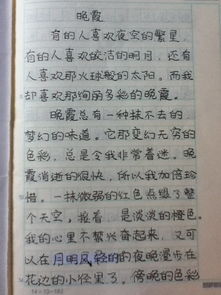 晚霞
有的人喜欢夜空的繁星,
有的人喜欢皎洁的明月,还有
人喜欢那火球般的太阳。而我
却喜欢那绚丽多彩的晚霞。
晚霞总有一种抹不去的
梦幻的味道。它那变幻无穷的
色彩,总是令我非常着迷。晚
霞消逝的很快,所以我加倍珍
惜。一抹微弱的红色点缀了整
个天空,接着是淡淡的橙色。
我的心里不禁兴奋起来,又可
以在月明风轻的的夜晚漫步在
花边的小径里了。傍晚的色彩